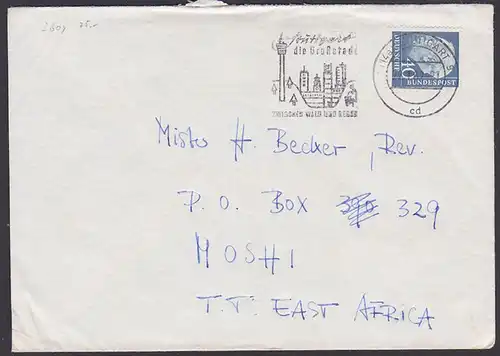 Stuttgart
die Großstadt
ZWISCHEN WALD UND REBEN
STUTTGART 9
cd
40
DEUTSCHE
BUNDESPOST
Mister H. Becker, Rev.
P. O. BOX 329
MOSHI
T.T. EAST AFRICA